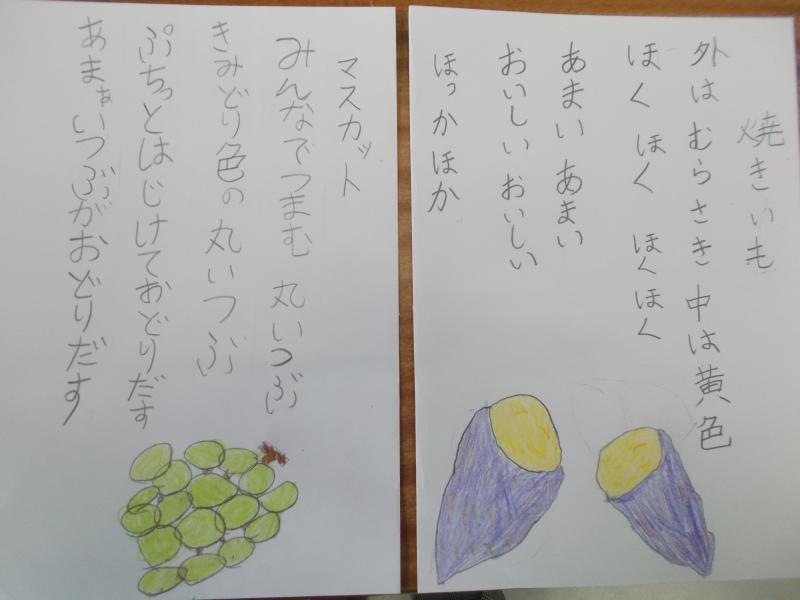 焼きいも
外はむらさき 中は黄色
ほく ほく ほくほく
あまい あまい
おいしい おいしい
ほっかほか
マスカット
みんなでつまむ 丸いつぶ
きみどり色の 丸いつぶ
ぷちっとはじけておどりだす
あまぁいつぶがおどりだす